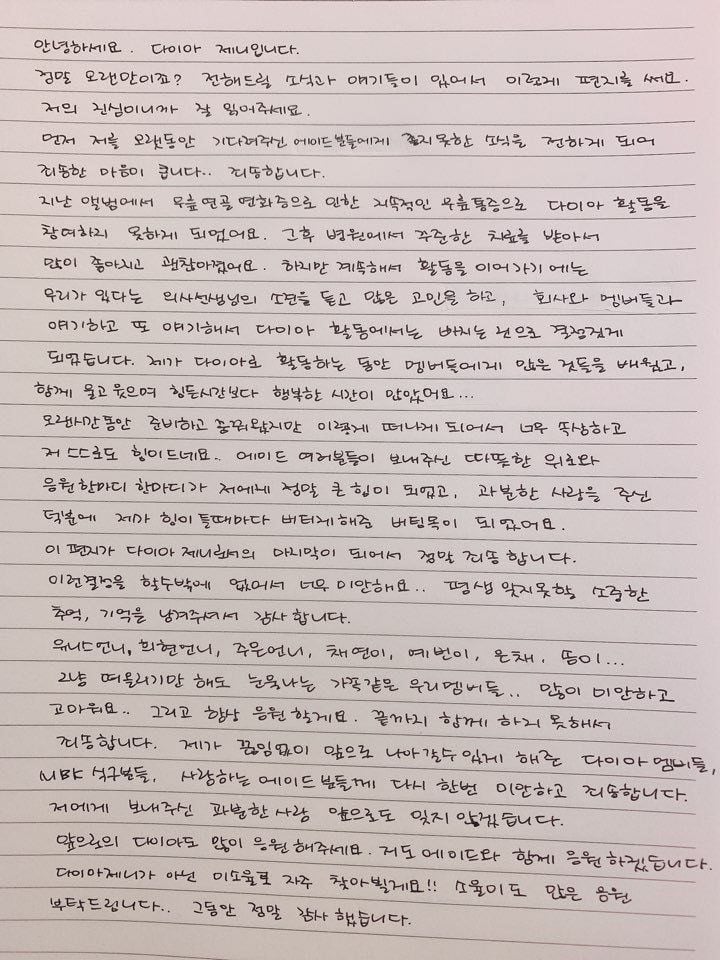 안녕하세요. 다이아 제니입니다.
정말 오랜만이죠? 전해드릴 소식과 얘기들이 있어서 이렇게 편지를 써요.
저의 진심이니까 잘 읽어주세요.
먼저 저를 오랫동안 기다려주신 에이드분들에게 좋지못한 소식을 전하게 되어
죄송한 마음이 큽니다.. 죄송합니다.
지난 앨범에서 무릎연골 연화증으로 인한 지속적인 무릎통증으로 다이아 활동을
참여하지 못하게 되었어요. 그후 병원에서 꾸준한 치료를 받아서
많이 좋아지고 괜찮아졌어요. 하지만 계속해서 활동을 이어가기 에는
무리가 있다는 의사선생님의 소견을 듣고 많은 고민을 하고, 회사와 멤버들과
얘기하고 또 얘기해서 다이아 활동에서는 빠지는 것으로 결정짓게
되었습니다. 제가 다이아로 활동하는 동안 멤버들에게 많은 것들을 배웠고,
함께 울고 웃으며 힘든시간보다 행복한 시간이 많았어요...
오랜시간동안 준비하고 꿈꿔왔지만 이렇게 떠나게 되어서 너무 속상하고
저 스스로도 힘이드네요.. 에이드 여러분들이 보내주신 따뜻한 위로와
응원한마디 한마디가 저에게 정말 큰 힘이 되었고, 과분한 사랑을 주신
덕분에 제가 힘이 들때마다 버티게해준 버팀목이 되었어요.
이 편지가 다이아 제니로서의 마지막이 되어서 정말 죄송합니다.
이런결정을 할수밖에 없어서 너무 미안해요.. 평생 잊지못할 소중한
추억, 기억을 남겨주셔서 감사합니다.
유니스언니, 희현언니, 주은언니, 채연이, 예빈이, 은채, 솜이...
그냥 떠올리기만 해도 눈물나는 가족같은 우리멤버들.. 많이 미안하고
고마워요.. 그리고 항상 응원할게요. 끝까지 함께 하지 못해서
죄송합니다. 제가 끊임없이 앞으로 나아갈수있게 해준 다이아 멤버들,
MBK 식구분들, 사랑하는 에이드분들께 다시 한번 미안하고 죄송합니다.
저에게 보내주신 과분한 사랑 앞으로도 잊지 않겠습니다.
앞으로의 다이아도 많이 응원해주세요. 저도 에이드와 함께 응원하겠습니다.
다이아제니가 아닌 이소율로 자주 찾아뵐게요!! 소율이도 많은 응원
부탁드립니다.. 그동안 정말 감사했습니다.